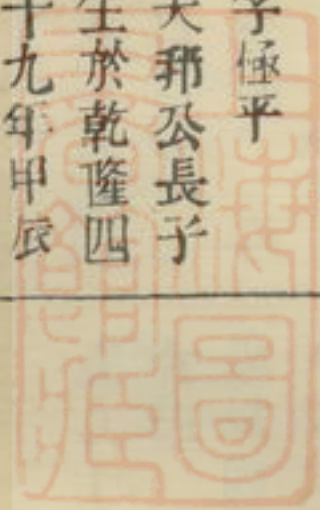 字極平
大邦公長子
生於乾隆四
十九年甲辰